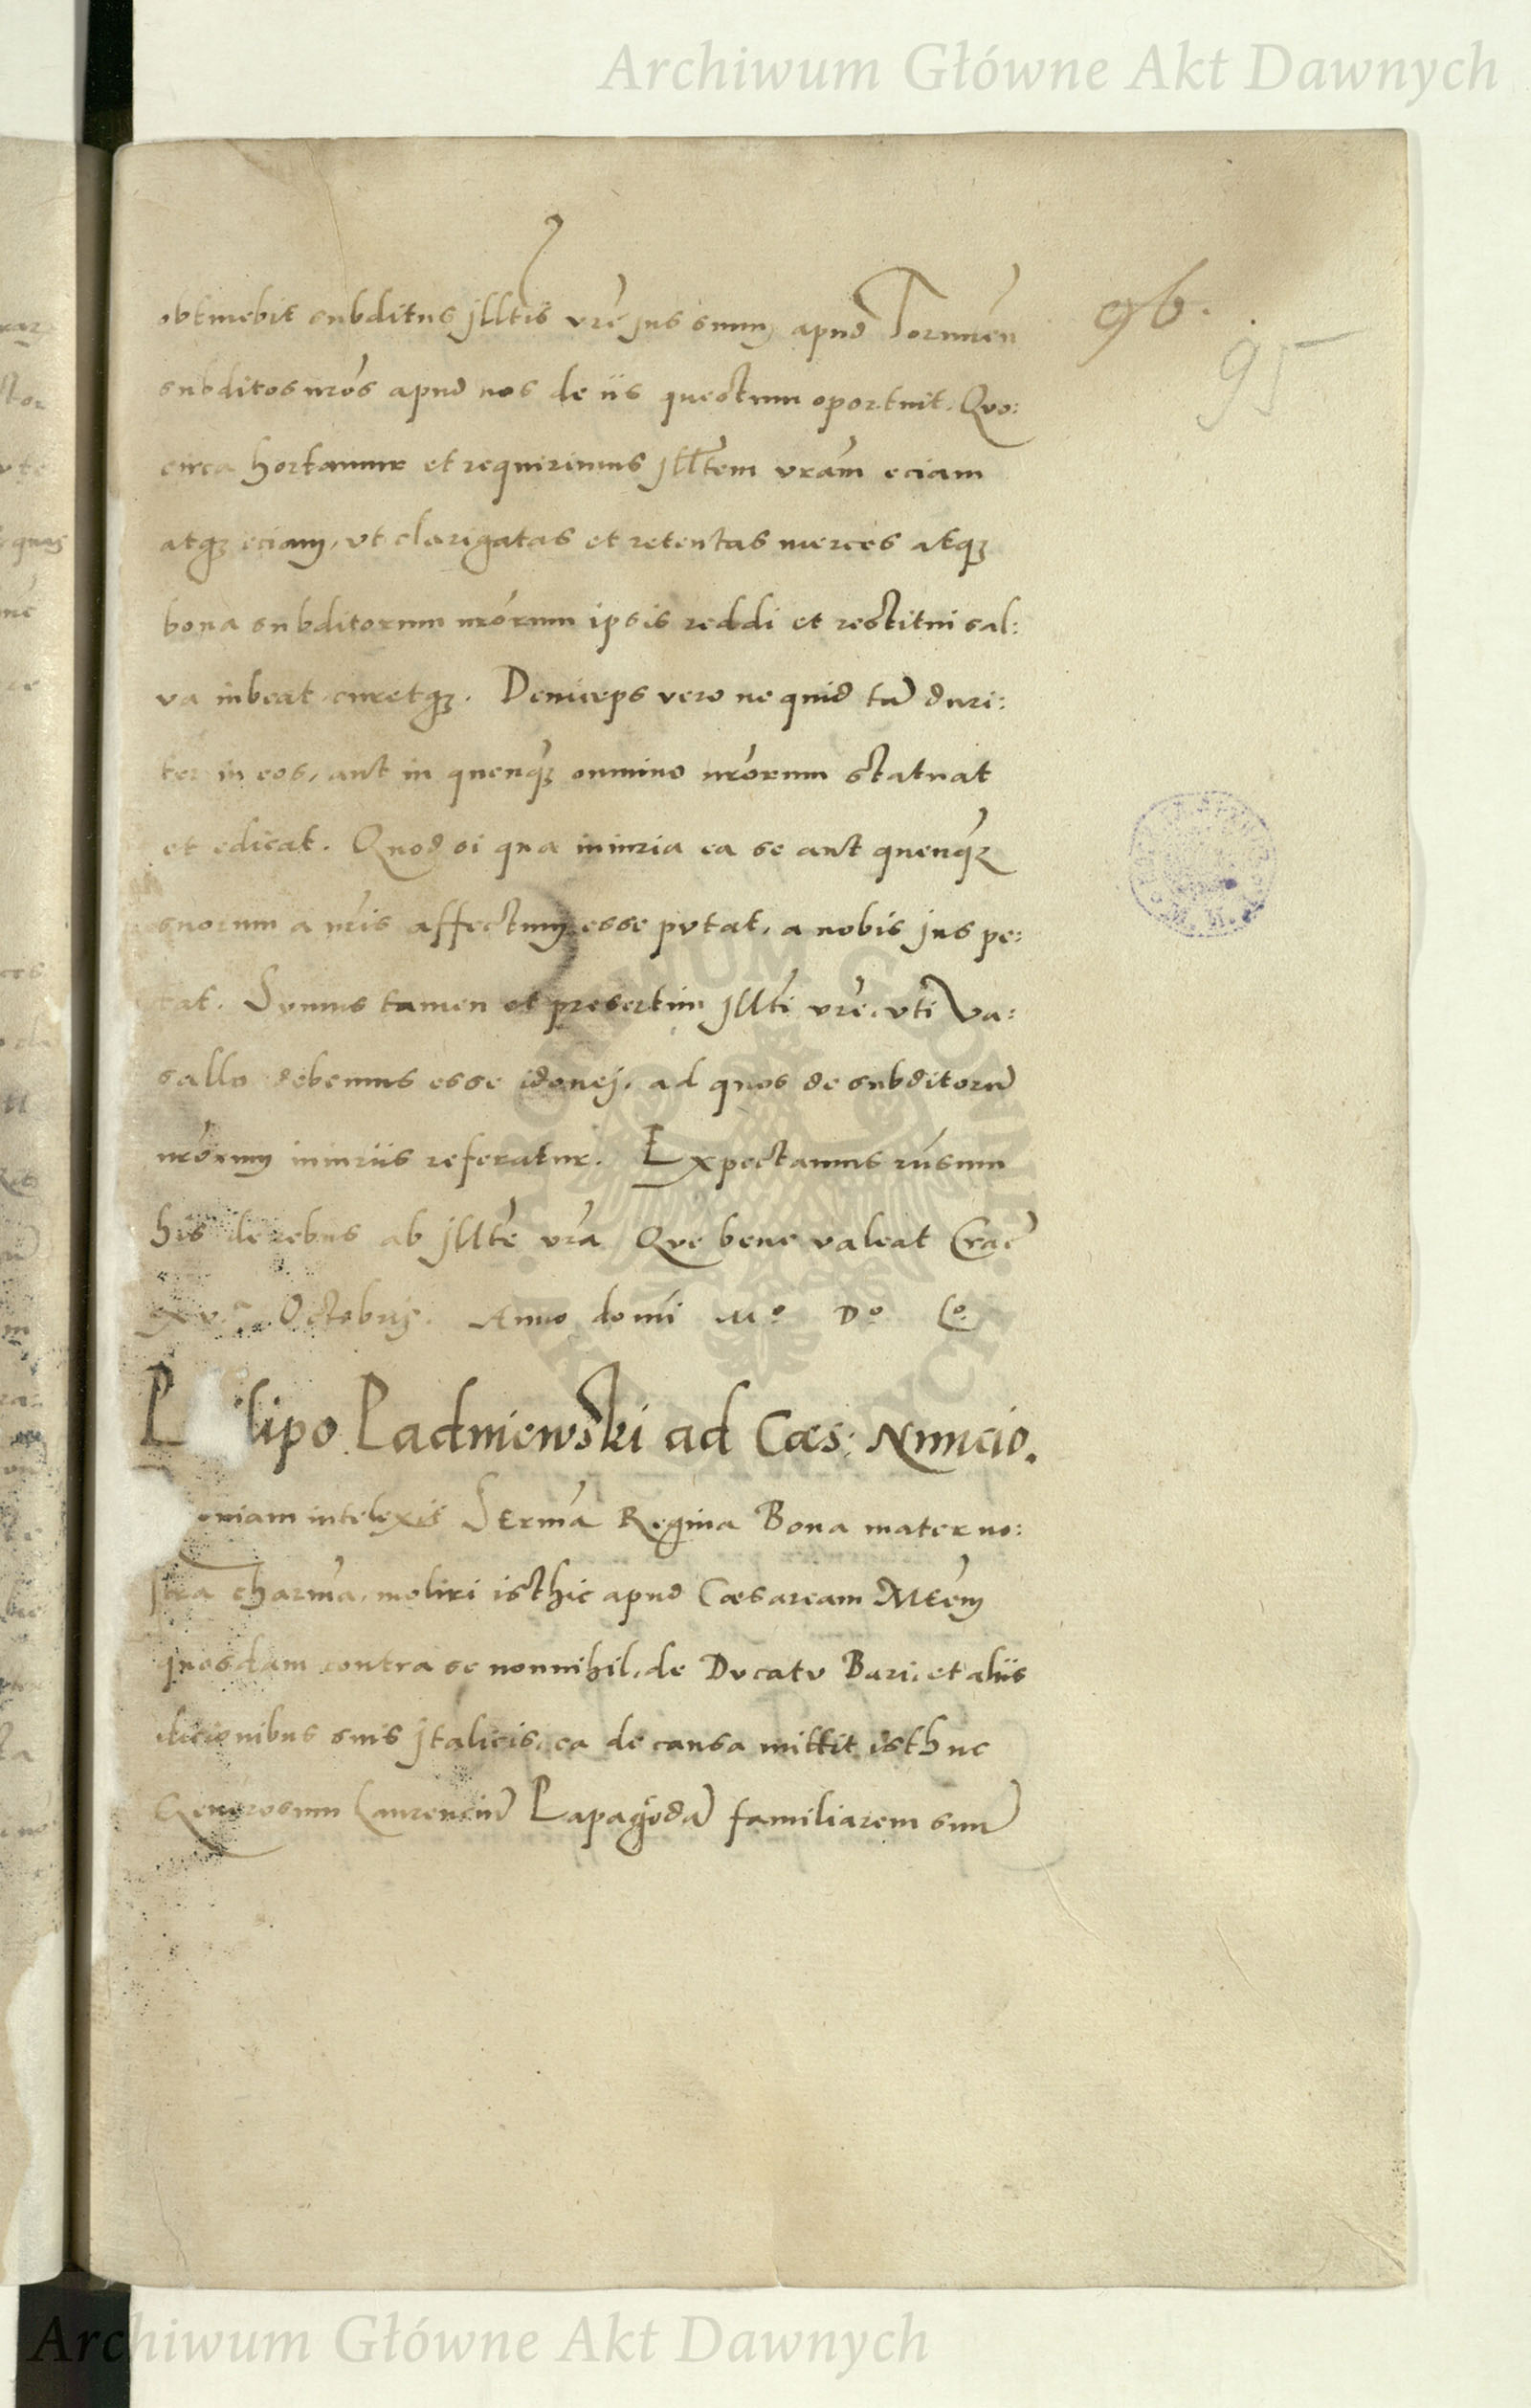 Archiwum Główne Akt Dawnych
96.
95
obtinebit subditus jlltis vrē jus suum apud Torunēn
subditos nrōs apud nos de iis questum oportuit. Quo:
circa hortamur et requirimus jlltem vrām eciam
atqʒ eciam, vt clarigatas et retentas merces atqʒ
bona subditorum nrōrum ipsis reddi et restitui sal:
va iubeat curetqʒ. Deinceps vero ne quid tā duri:
ter in eos, aut in quenqʒ omnino nrōrum statuat
et edicat. Quod si qua iniuria ea se aut quenqʒ
suorum a nrīs affectum esse putat, a nobis jus pe:
tat. Sumus tamen et presertim jllti vrē, vti va:
sallo debemus esse idonej, ad quos de subditorū
nrōrum iniuriis referatur. Expectamus rūsum
his de rebus ab jllte vrā Que bene valeat Crac̄
xv.ᵃ Octobris. Anno domī Mº Dº Lº.
P lipo Padniewski ad Cæs: Nuncio.
oniam intelexit Serma Regina Bona mater no:
stra charma, moliri isthic apud Cæsaream Mtem
quosdam contra se nonnihil, de Ducatu Bari, et aliis
dicionibus suis jtalicis, ea de causa mittit isthuc
Generosum Laurenciū Papagodā familiarem suū
Archiwum Główne Akt Dawnych